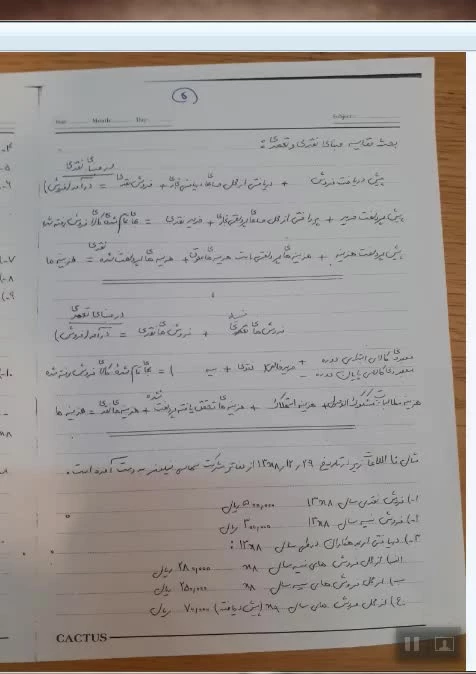 6
Date: Month: Day: Subject:
بحث مقایسه مبنای نقدی و تعهدی:
در مبنای نقدی
پیش دریافت فروش + دریافتی از محل حسابهای دریافتنی + فروش نقدی = درآمد (فروش)
پیش پرداخت خرید + پرداختی از محل حسابهای پرداختنی + خرید نقدی = بهای تمام شده کالای فروش رفته شده
نقدی
پیش پرداخت هزینه + هزینه های پرداختی بابت هزینه های معوق + هزینه های پرداخت شده = هزینه ها
در مبنای تعهدی
نسیه
فروش های تعهدی + فروش های نقدی = درآمد (فروش)
موجودی کالای ابتدای دوره + خرید خالص (نقدی + نسیه) = بهای تمام شده کالای فروش رفته شده
موجودی کالای پایان دوره -
نشده
هزینه مطالبات مشکوک الوصول + هزینه استهلاک + هزینه های تحقق یافته پرداخت + هزینه های نقد = هزینه ها
مثال: اطلاعات زیر در تاریخ ۱۳x۸/۱۲/۲۹ از دفاتر شرکت بدست آمده است.
۱-) فروش نقدی سال ۱۳x۸ ۵۰۰,۰۰۰ ریال
۲-) فروش نسیه سال ۱۳x۸ ۳۰۰,۰۰۰ ریال
۳-) دریافتی از بدهکاران در طی سال ۱۳x۸:
الف) از محل فروش های نسیه سال x۸ ۲۸۰,۰۰۰ ریال
ب) از محل فروش های نسیه سال x۸ ۲۵۰,۰۰۰ ریال
ج) از محل فروش های سال x۹ (پیش دریافت) ۷۰,۰۰۰ ریال
CACTUS